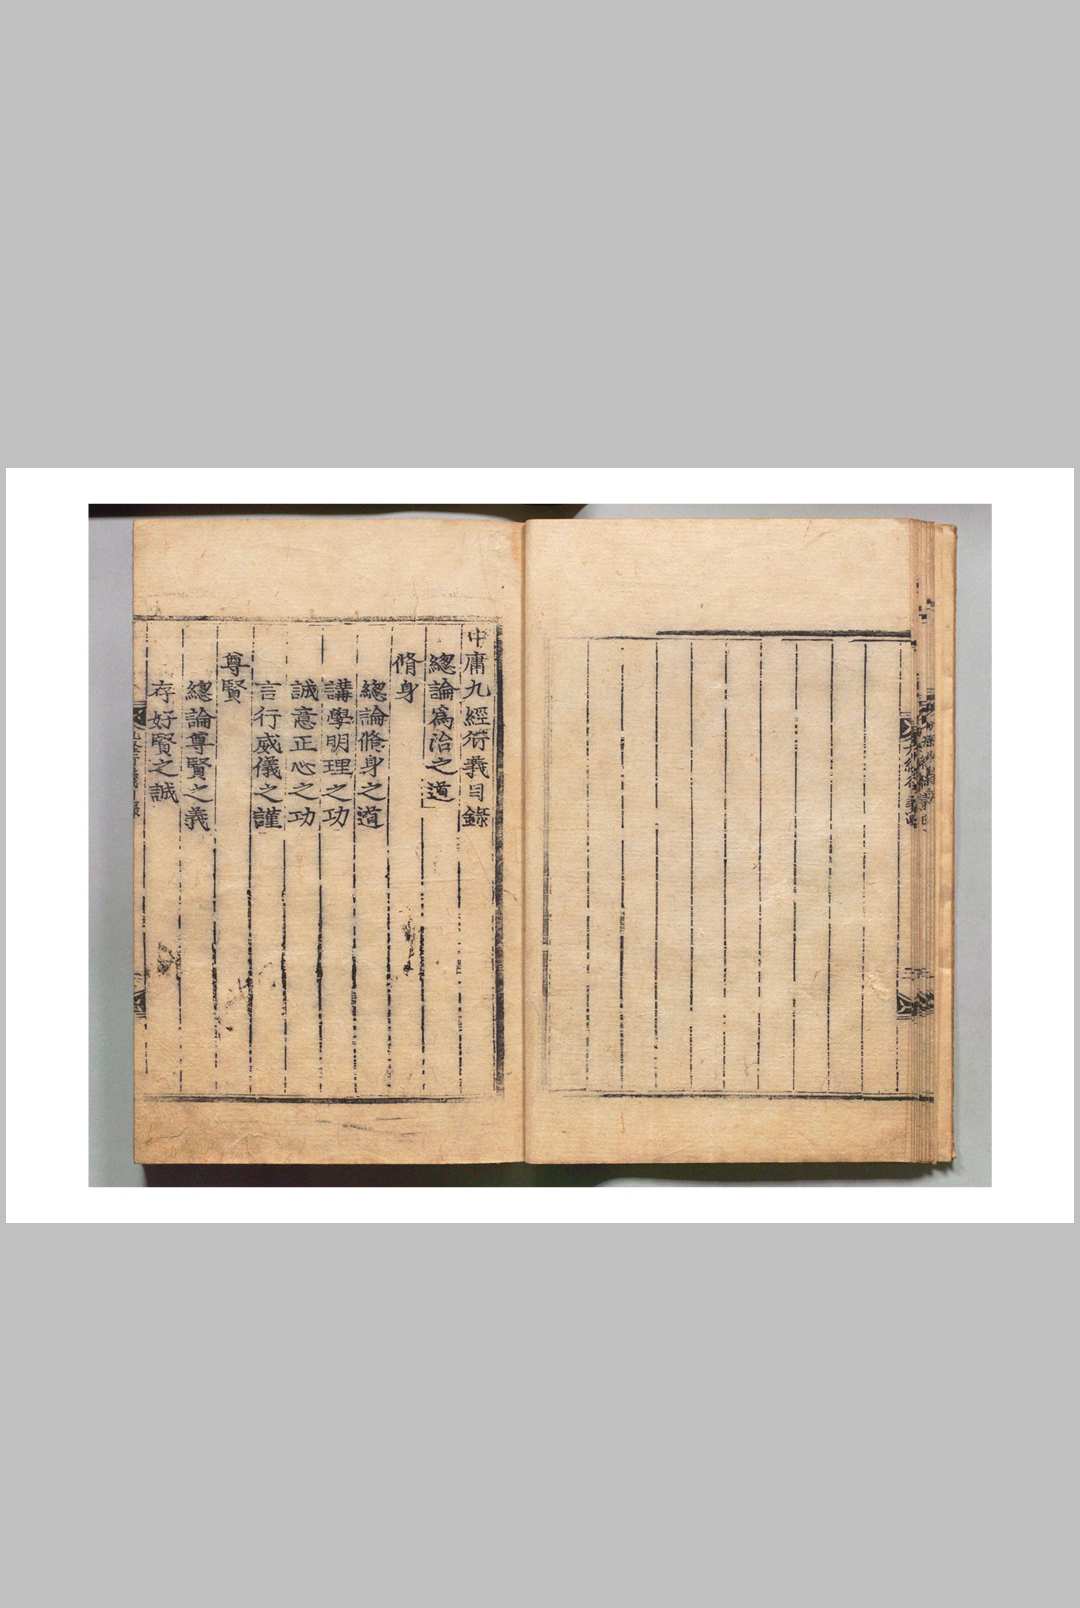 中庸九經衍義目錄
總論爲治之道
脩身
總論脩身之道
講學明理之功
誠意正心之功
言行威儀之謹
尊賢
總論尊賢之義
存好賢之誠